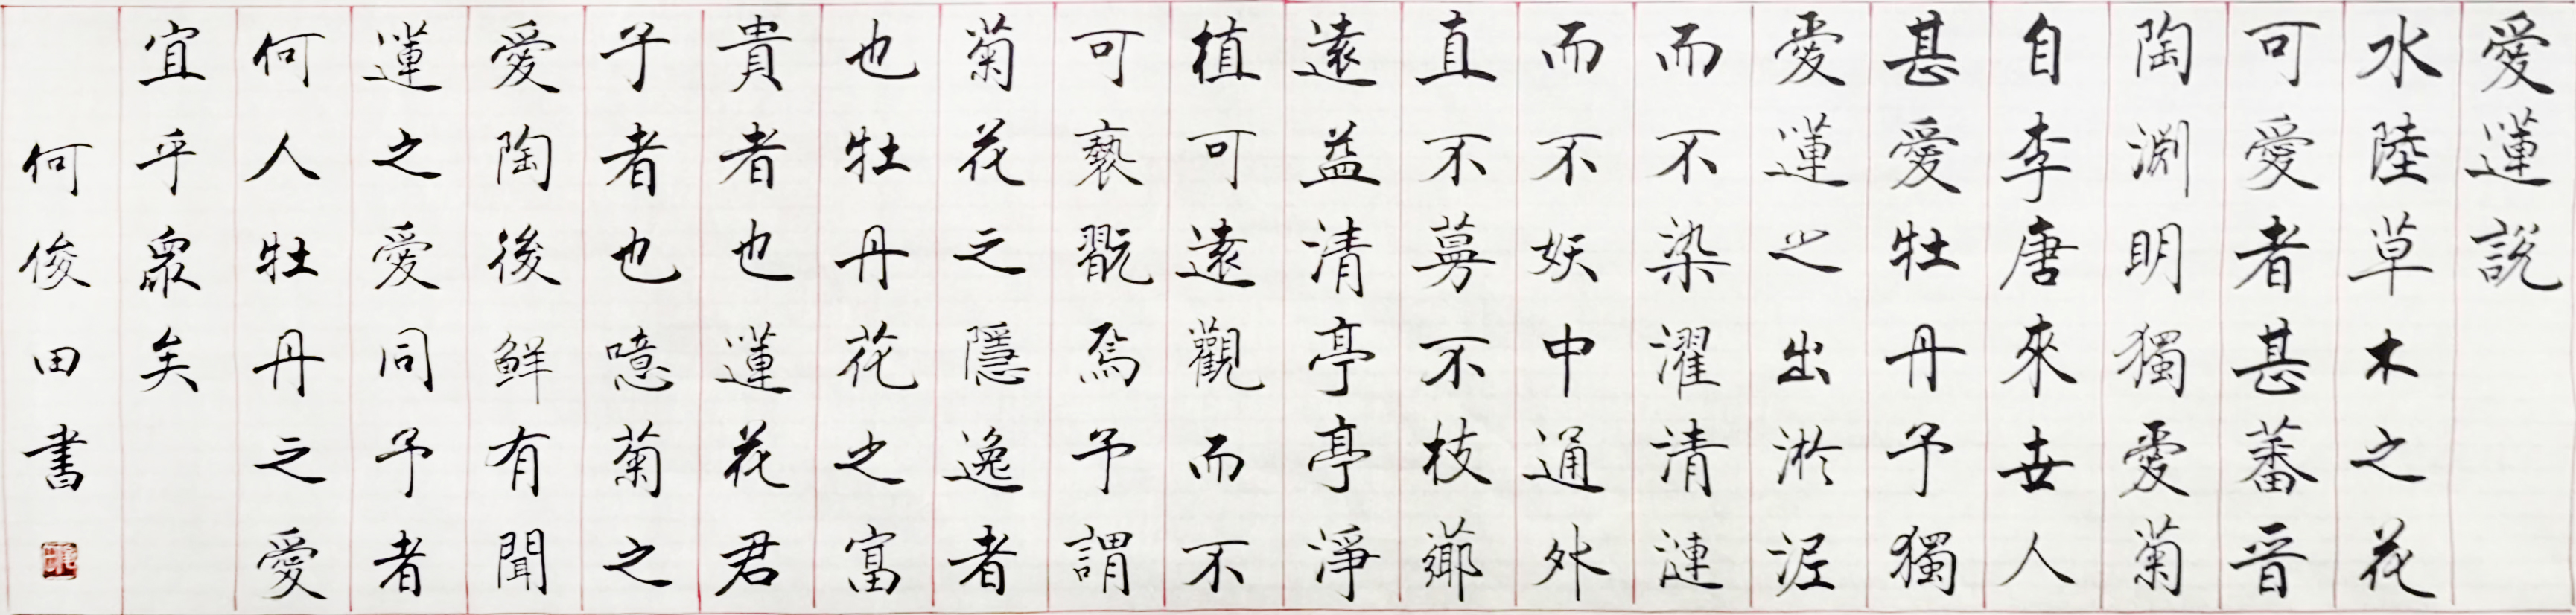 愛蓮說
水陸草木之花
可愛者甚蕃晉
陶淵明獨愛菊
自李唐來世人
甚愛牡丹予獨
愛蓮之出淤泥
而不染濯清漣
而不妖中通外
直不蔓不枝薌
遠益清亭亭淨
植可遠觀而不
可褻翫焉予謂
菊花之隱逸者
也牡丹花之富
貴者也蓮花君
子者也噫菊之
愛陶後鮮有聞
蓮之愛同予者
何人牡丹之愛
宜乎眾矣
何俊田書